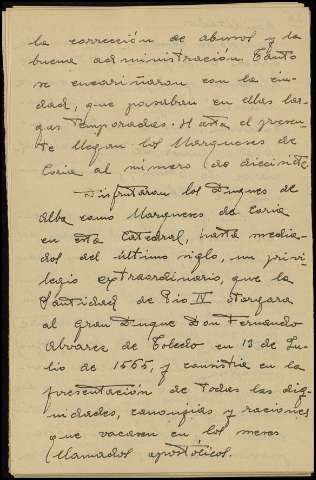 la corrección de abusos y la
buena administración. Tanto
se encariñaron con la ciu-
dad, que pasaban en ellas lar-
gas temporadas. Hasta el presen-
te llegan los Marqueses de
Coria al número de diecisiete.
Disfrutaron los Duques de
Alba como Marqueses de Coria
en esta Catedral, hasta media-
dos del último siglo, un privi-
legio extraordinario, que la
Santidad de Pio IV otorgara
al gran Duque Don Fernando
Alvarez de Toledo en 13 de Ju-
lio de 1565, y consistia en la
presentación de todas las dig-
nidades, canongias y raciones
que vacasen en los meses
llamados apostólicos.